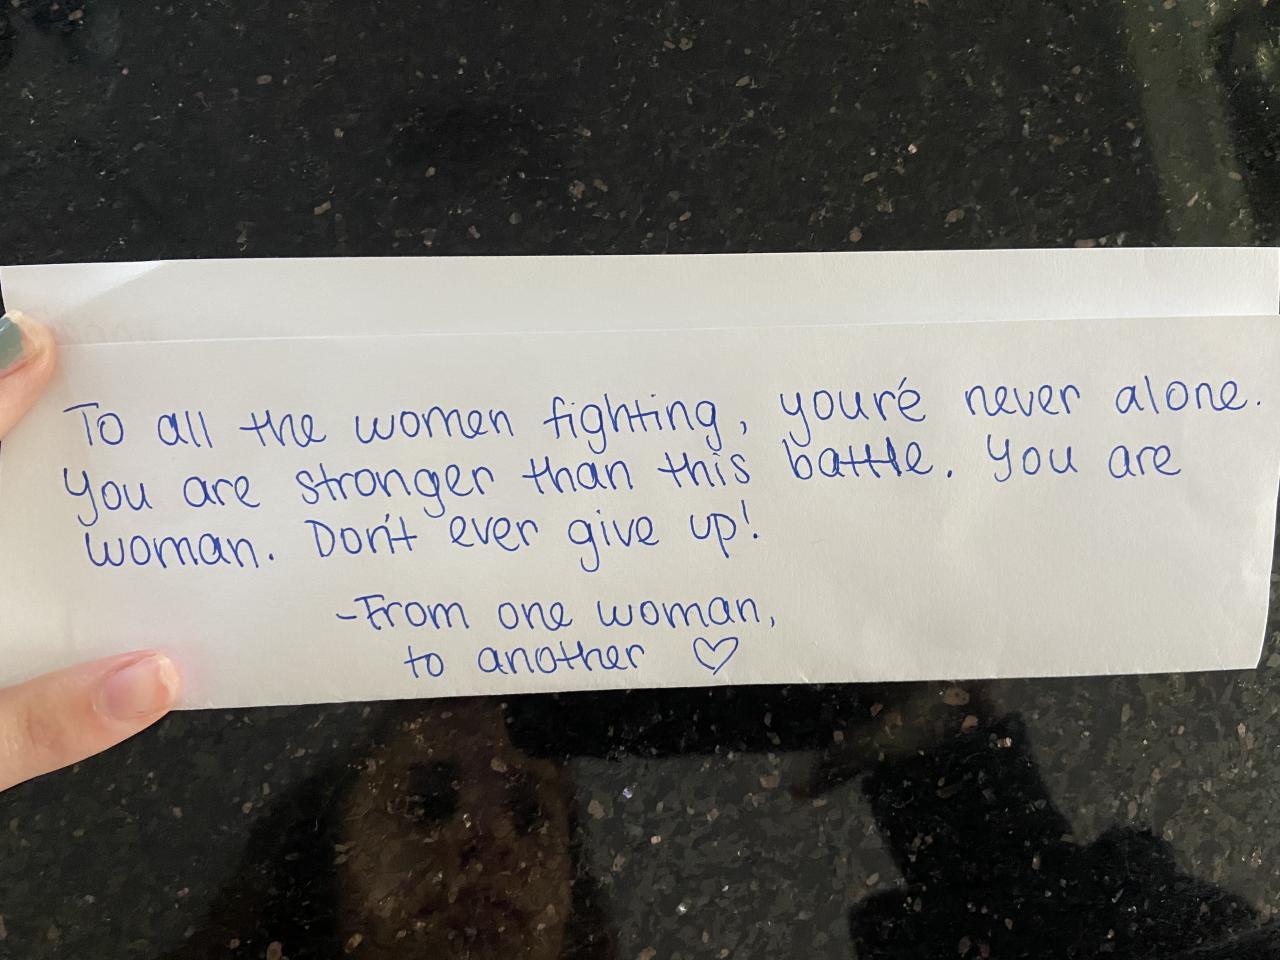 To all the women fighting, you're never alone.
You are stronger than this battle. You are
woman. Don't ever give up!
-From one woman,
to another ♡